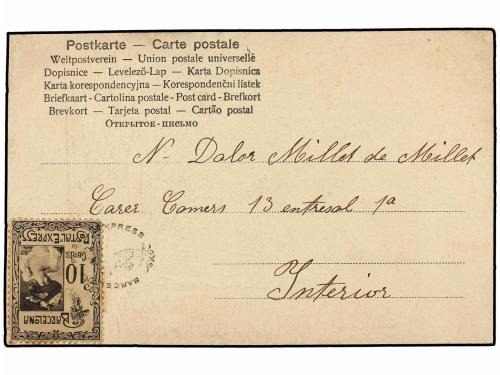 Postkarte — Carte postale
Weltpostverein — Union postale universelle
Dopisnice — Levelező-Lap — Karta Dopisnica
Karta korespondencyjna — Korespondenční lístek
Briefkaart - Cartolina postale - Post card - Brefkort
Brevkort — Tarjeta postal — Cartão postal
Открытое-письмо
N. Dalor Millet de Millet
Carer Comers 13 entresol 1ª
Interior
EXPRESS
BARCEL
BARCELONA
10
Cents
POSTAL EXPRESS